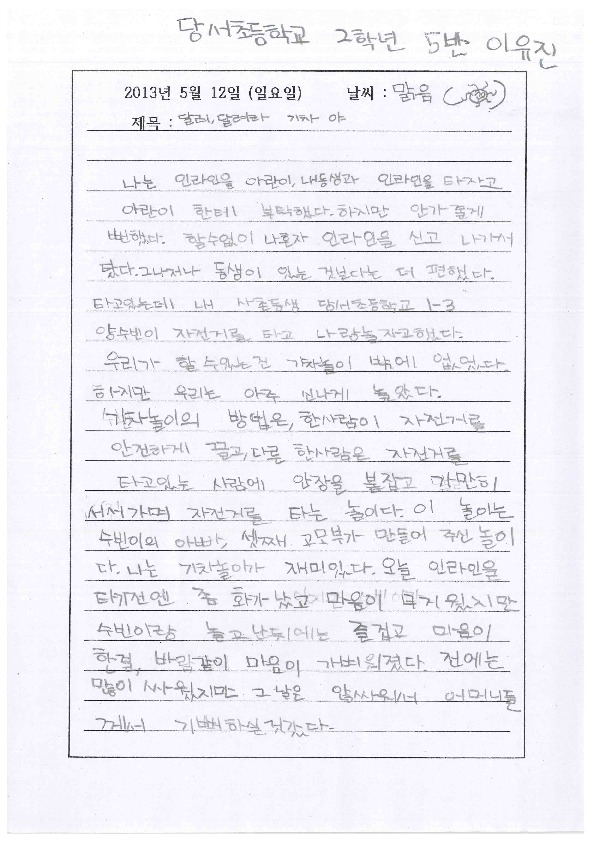 당서초등학교 2학년 5반 이유진
2013년 5월 12일 (일요일) 날씨 : 맑음
제목 : 달려, 달려라 기차 야
나는 인라인을 아란이, 내동생과 인라인을 타자고
아란이 한테 부탁했다. 하지만 안가 줄게
뻔했다. 할수없이 나혼자 인라인을 신고 나가서
탔다. 그나저나 동생이 있는 것보다는 더 편했다.
타고있는데 내 사촌동생 당서초등학교 1-3
양수빈이 자전거를 타고 나랑놀자고했다.
우리가 할 수있는건 기차놀이 밖에 없었다.
하지만 우리는 아주 신나게 놀았다.
기차놀이의 방법은, 한사람이 자전거를
안전하게 끌고, 다른 한사람은 자전거를
타고있는 사람에 안장을 붙잡고 가만히
서서가며 자전거를 타는 놀이다. 이 놀이는
수빈이의 아빠, 셋째 고모부가 만들어 주신 놀이
다. 나는 기차놀이가 재미있다. 오늘 인라인을
타기전엔 좀 화가났고 마음이 무거웠지만
수빈이랑 놀고난뒤에는 즐겁고 마음이
한결, 바람같이 마음이 가벼워졌다. 전에는
많이 싸웠지만 그날은 안싸워서 어머니들
께서 기뻐하실것같다.